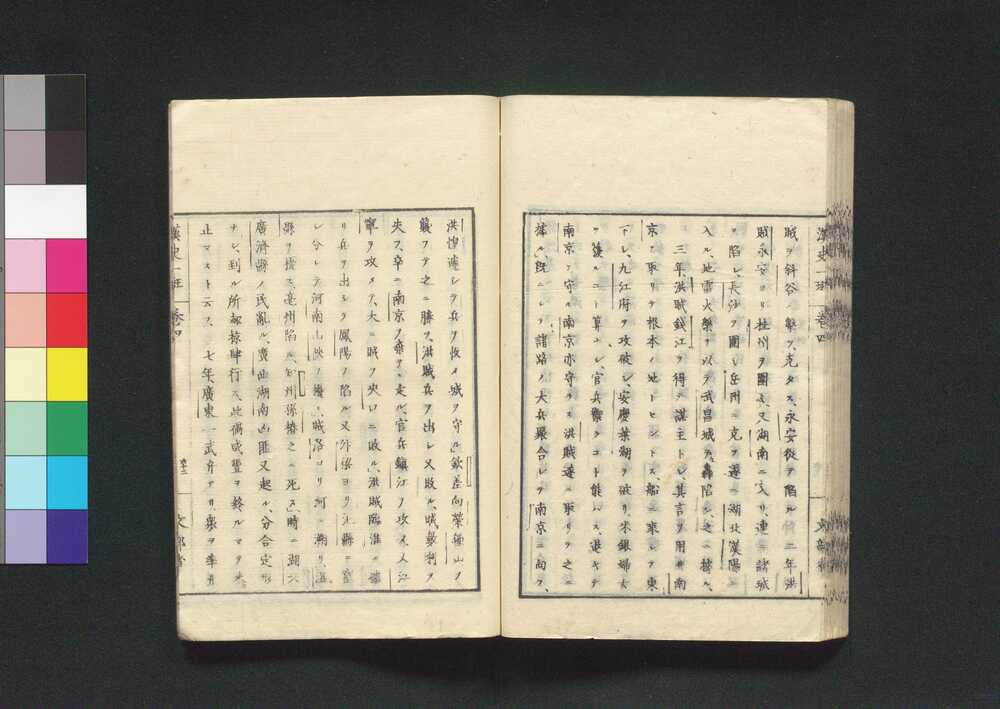 漢史一班 卷四
賊ヲ斜谷ニ擊ツ、克タス、永安從テ陷ル 二年洪
賊永安ヨリ桂州ヲ圍ミ、又湖南ニ入リ、連ニ諸城
ヲ陷レ、長沙ヲ圍ミ岳州ニ克ヲ遂ニ湖北漢陽ニ
入ル、地雷火藥ヲ以テ武昌城ヲ轟陷シ、之ニ據ル、
三年、洪賊錢江ヲ得テ謀主トシ、其言ヲ用ヰ南
京ヲ取リテ根本ノ地トセントス、船ニ乘シテ東
下シ、九江府ヲ攻破シ、安慶蕪湖ヲ破リ米銀婦女
ヲ獲ルコト算ナシ、官兵禦クコト能ハス、退キテ
南京ヲ守ル南京亦守ラス洪賊遂ニ取リテ之ニ
據ル、既ニシテ諸路ノ大兵聚合シテ南京ニ向フ、
洪 シテ兵ヲ收メ城ヲ守ル、欽差向榮鍾山ヲ
襲フテ之ニ勝ツ、洪賊兵ヲ出シ又敗ル、賊 利ヲ
失フ、卒ニ南京ヲ棄テヽ走ル、官兵鎭江ヲ攻メ、入江
寧ヲ攻メテ、大ニ賊ヲ 口ニ敗ル、洪賊臨淮ニ據
リ兵ヲ出シテ鳳陽ヲ陷ル又 ヨリ
レ分レテ河南山 賊 リ河ニ リ溫
縣ヲ據ス、亳州陷ル、知州孫椿之ニ死ス、時ニ湖北
廣濟縣ノ民亂ル、廣西湖南凶匪又起ル、分合定形
ナシ、到ル所却掠肆行ス、此禍咸豐ヲ終ルマテ
止マスト云フ、 七年廣東一武弁アリ、衆ヲ率ヰ
漢史一班 卷四 文部省